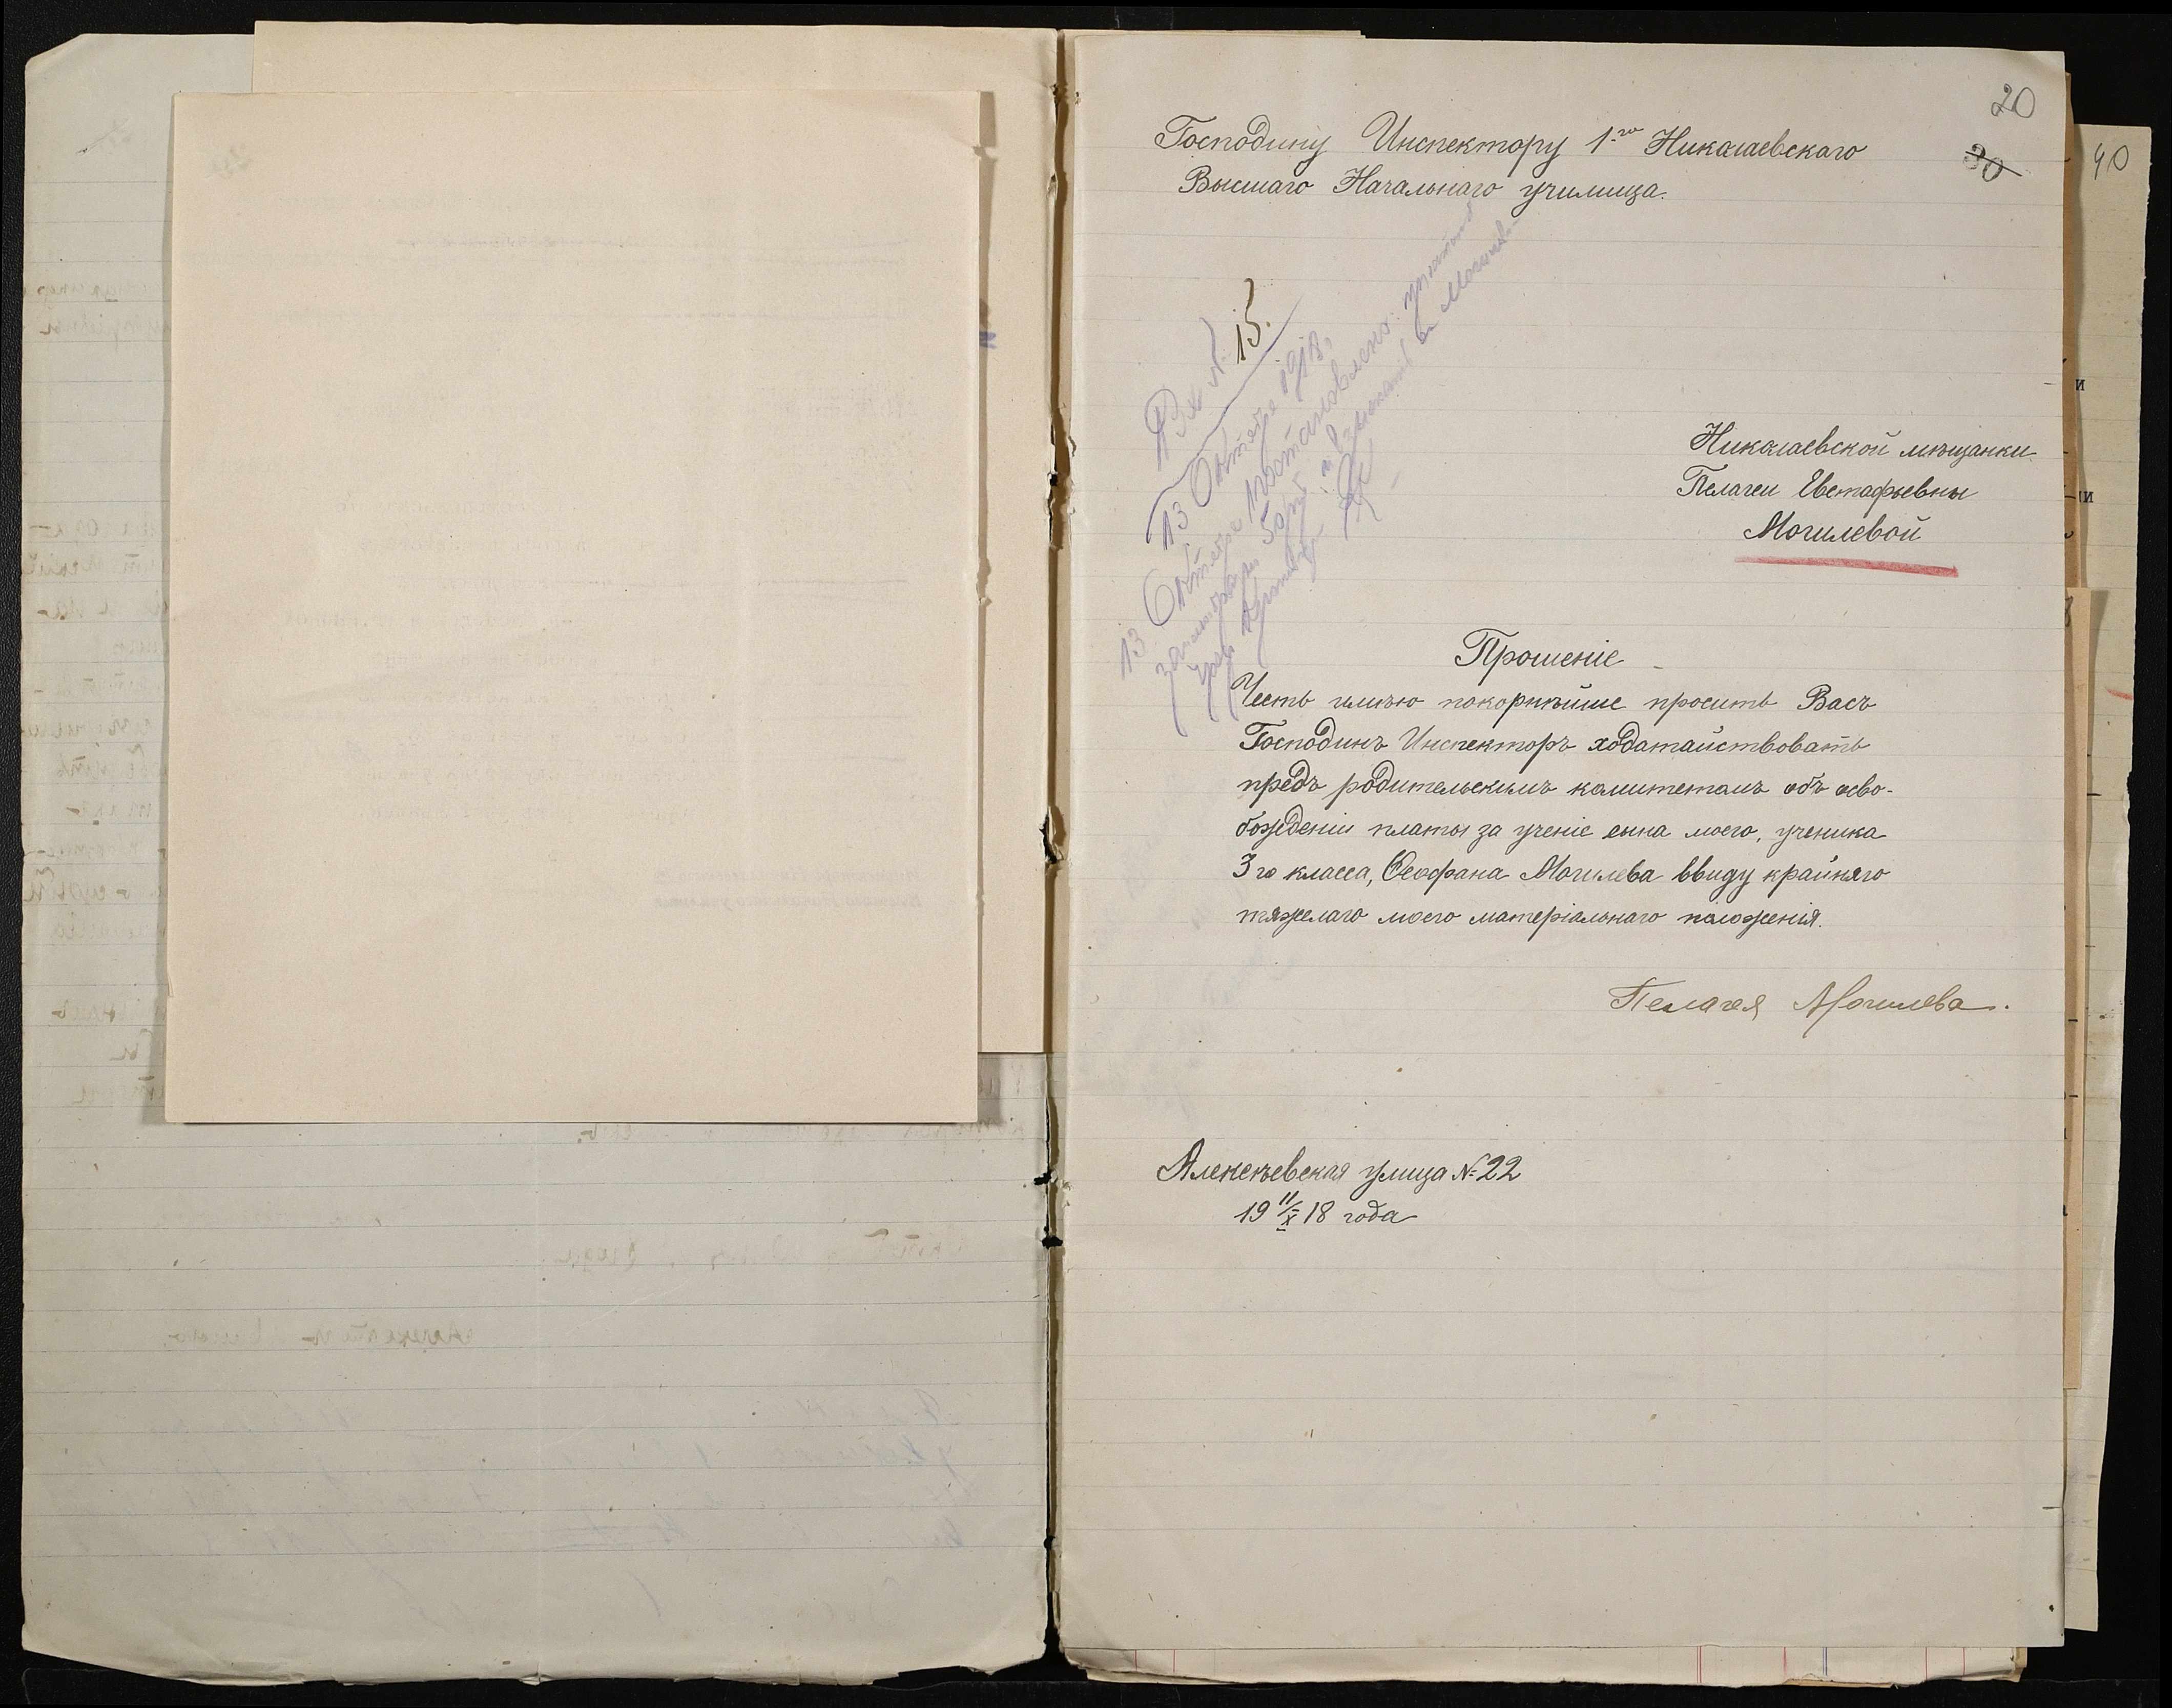 20
30
40
Господину Инспектору 1-го Николаевскаго
Высшаго Начальнаго училища.
Вх. № 15.
13 Октября 1918 г.
13 Октября постановлено:
Николаевской мѣщанки
Пелагеи Евстафьевны
Могилевой
Прошеніе
Честь имѣю покорнѣйше просить Васъ
Господинъ Инспекторъ ходатайствовать
предъ родительскимъ комитетомъ объ осво-
божденіи платы за ученіе сына моего, ученика
3го класса, Ѳеофана Могилева ввиду крайняго
тяжелаго моего матеріальнаго положенія.
Пелагея Могилева.
Алексѣевская улица № 22
19 11/X 18 года